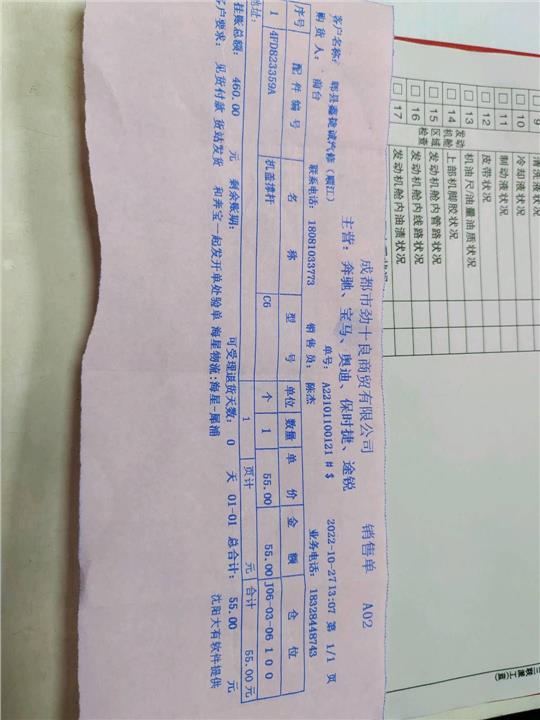 成都市劲十良商贸有限公司 销售单 A02
主营：奔驰、宝马、奥迪、保时捷、途锐
单号： A22101100121 # $ 2022-10-27 13:07 第 1/1 页
客户名称： 郫县鑫捷诚汽修（顺江）
购 货 人： 前台 联系电话： 18081033773 销 售 员： 陈杰 业务电话： 18328448743
序号 配 件 编 号 名 称 型 号 单位 数量 单 价 金 额 仓 位
1 4FD823359A 机盖撑杆 C6 个 1 55.00 55.00 J06-03-06 1 0 0
地址： 1 页计 元 合计 55.00 元
挂账总额： 460.00 元 剩余账期： 可受理退货天数： 0 天 01-01 总合计： 55.00 元
客户要求： 见货付款 货站发货 和奔宝一起发开单处验单 海星物流:海星-犀浦 沈阳大有软件提供
□ 9 清洗液状况
□ 10 冷却液状况
□ 11 制动液状况
□ 12 皮带状况
□ 13 机油尺油量油质状况
□ 14 上部机脚胶状况
□ 15 发动机舱内管路状况
□ 16 发动机舱内线路状况
□ 17 发动机舱内油渍状况
发动
机舱
区域
检查